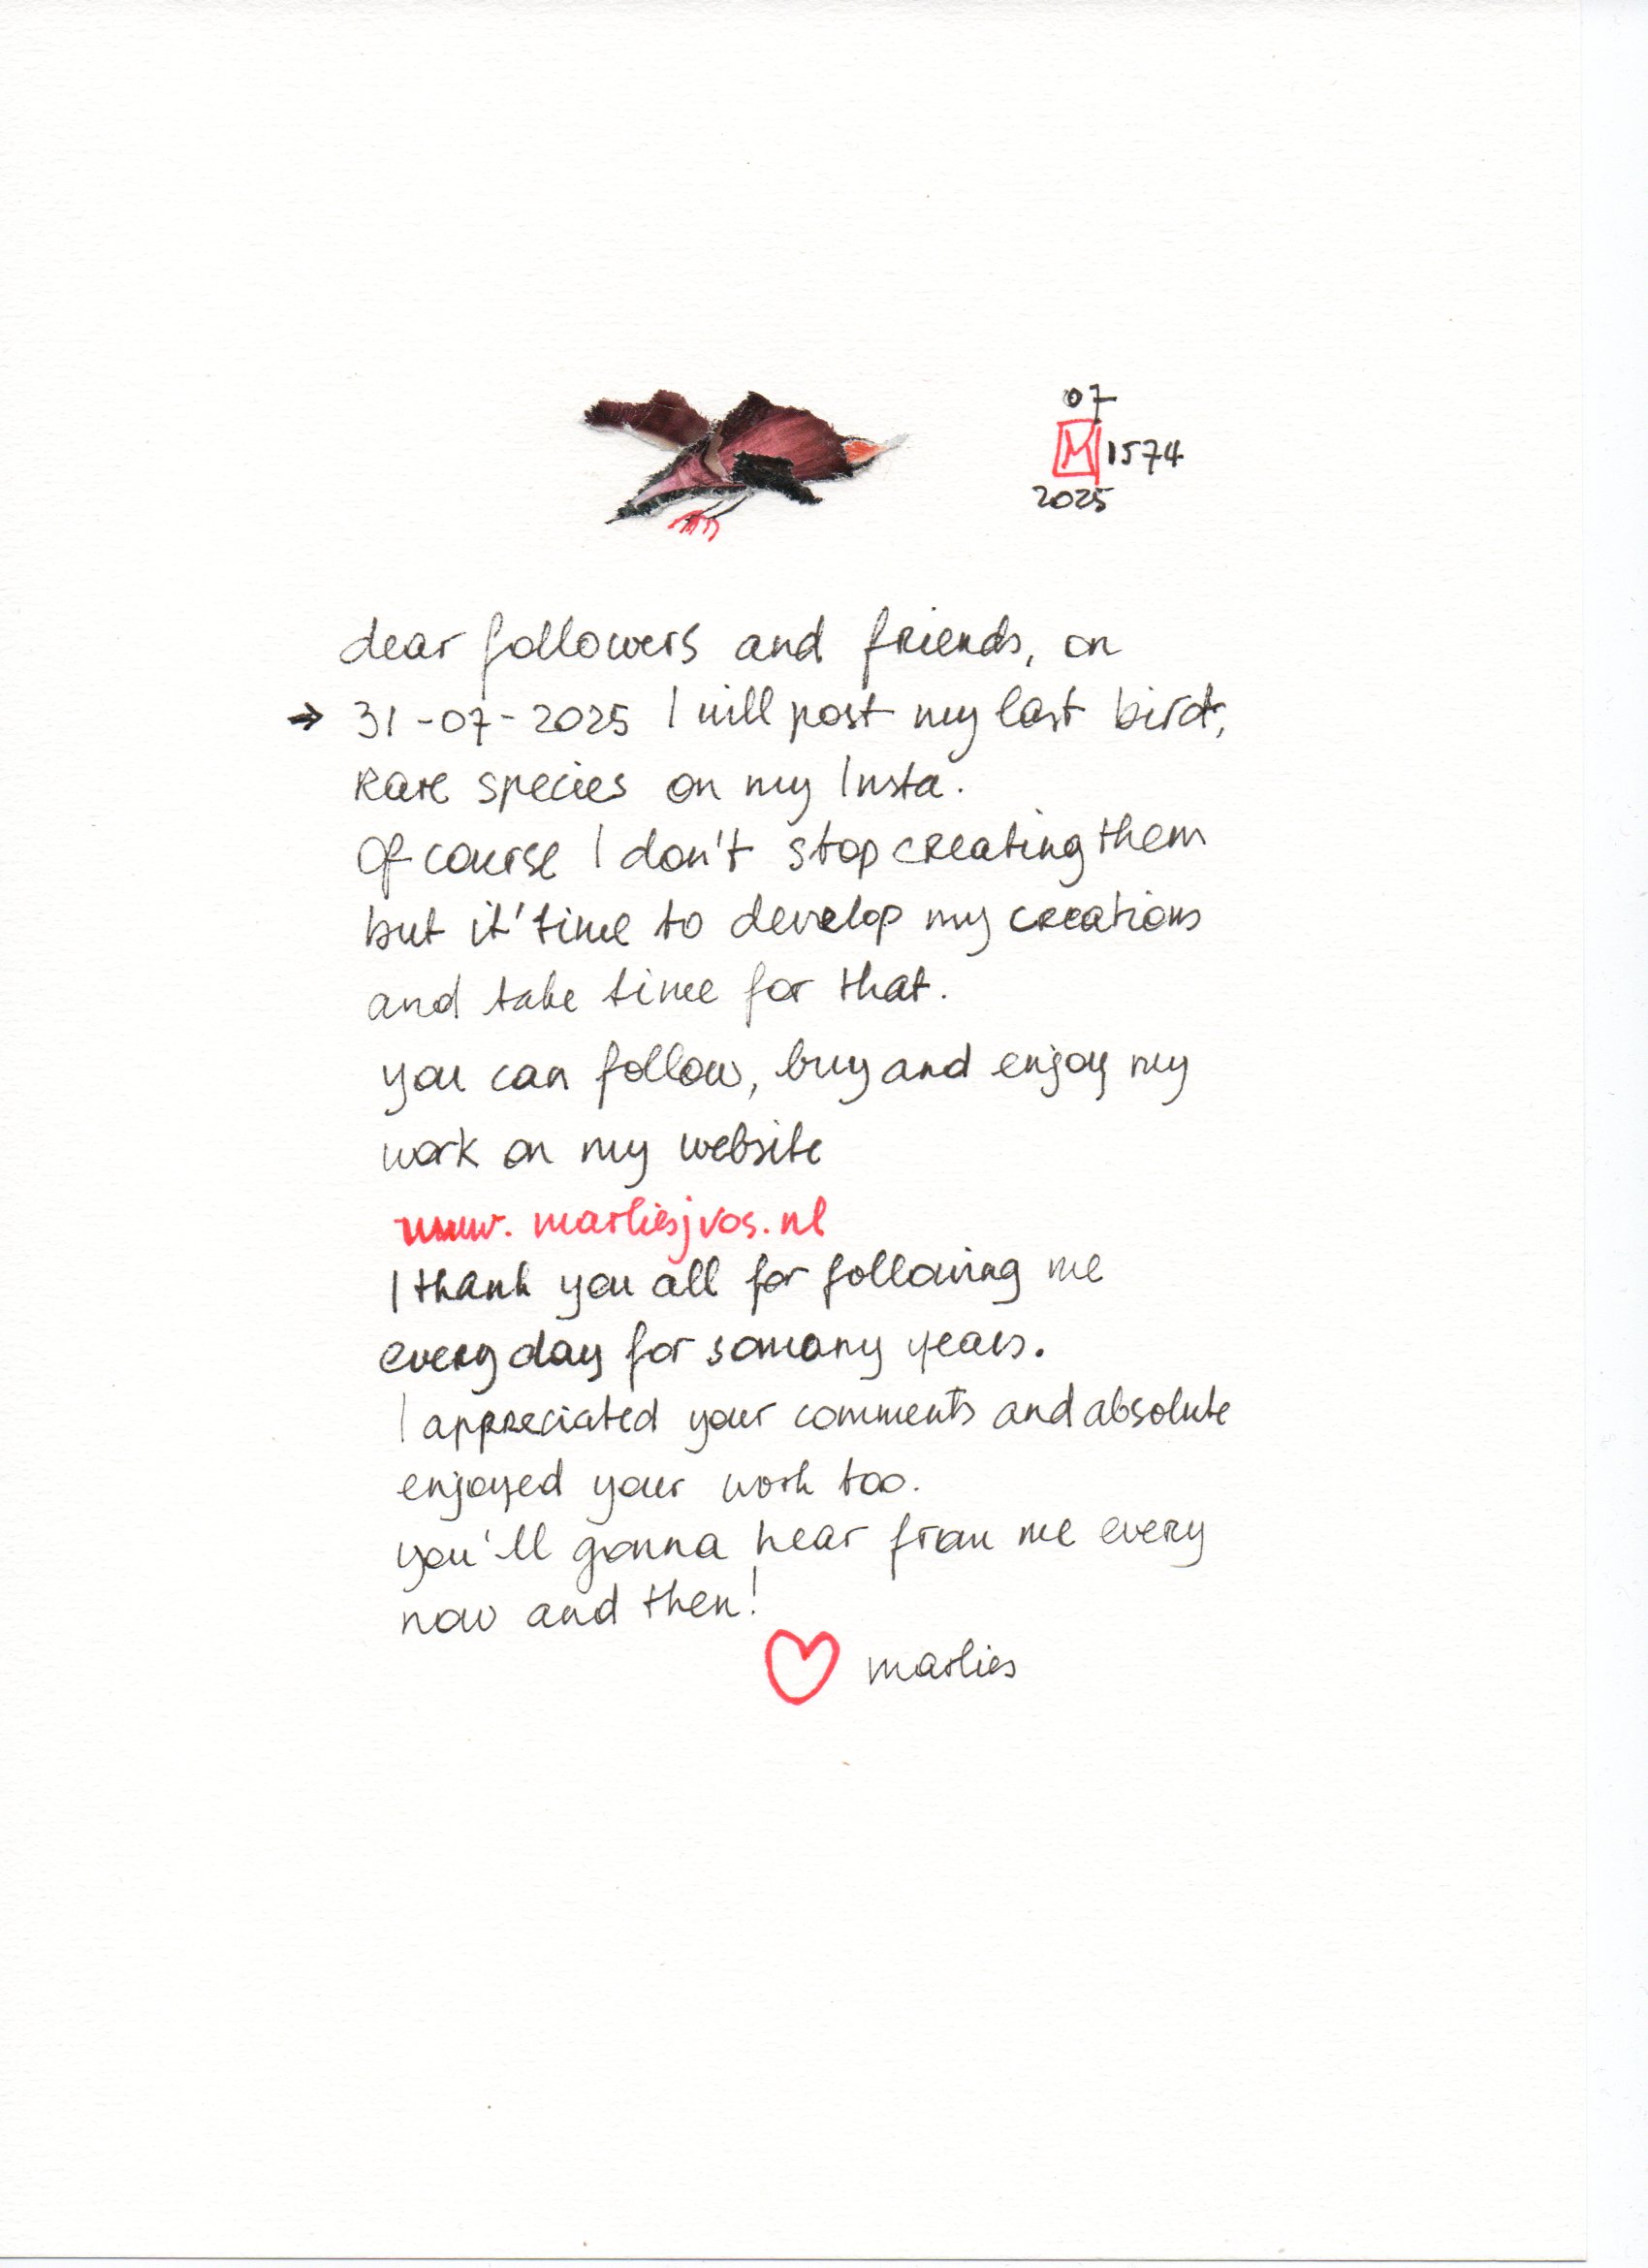 07
M 1574
2025
dear followers and friends, on
→ 31-07-2025 I will post my last bird,
Rare species on my Insta.
Of course I don't stop creating them
but it'time to develop my creations
and take time for that.
you can follow, buy and enjoy my
work on my website
www.marliesjvos.nl
I thank you all for following me
every day for somany years.
I appreciated your comments and absolute
enjoyed your work too.
you'll gonna hear from me every
now and then!
♡ marlies